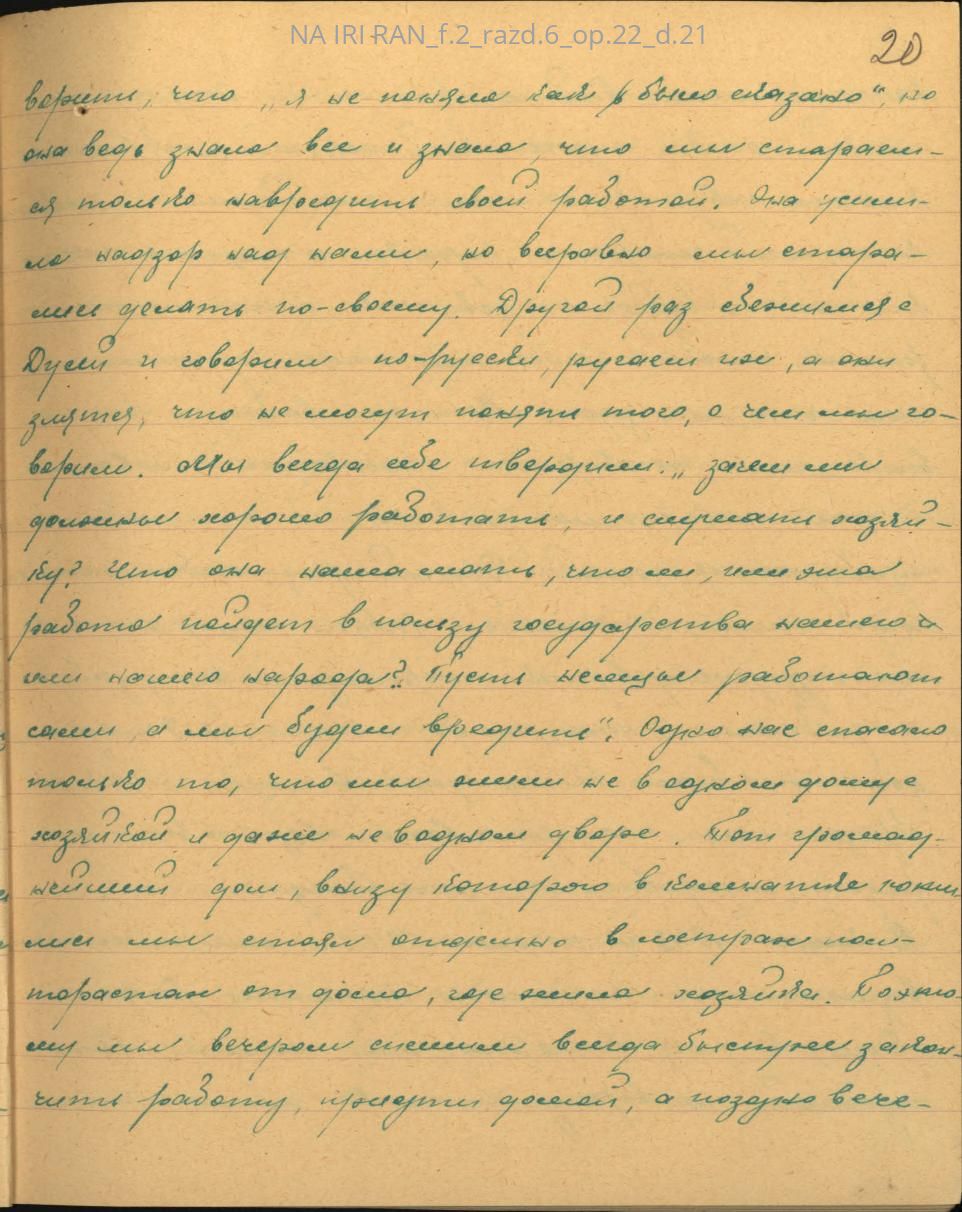 NA IRI RAN_f.2_razd.6_op.22_d.21
20
ворить, что „я не поняла как было сказано“, но
она ведь знала все и знала, что мы стараем-
ся только навредить своей работой. Она усили-
ла надзор над нами, но всеравно мы стара-
лись делать по-своему. Другой раз сбежимся с
Дусей и говорим по-русски, ругаем их, а они
злятся, что не могут понять того, о чем мы го-
ворим. Мы всегда себе твердили: „зачем мы
должны хорошо работать, и слушать хозяй-
ку? Что она наша мать, что ли, или эта
работа пойдет в пользу государства нашего
или нашего народа? Пусть немцы работают
сами, а мы будем вредить“. Одно нас спасало
только то, что мы жили не в одном дому с
хозяйкой и даже не в одном дворе. Тот громад-
нейший дом, внизу которого в комнатке
лись мы стоял отдельно в метрах пол-
торастах от дома, где жила хозяйка. Поэто-
му мы вечером спешили всегда быстрее закон-
чить работу, придти домой, а поздно вече-